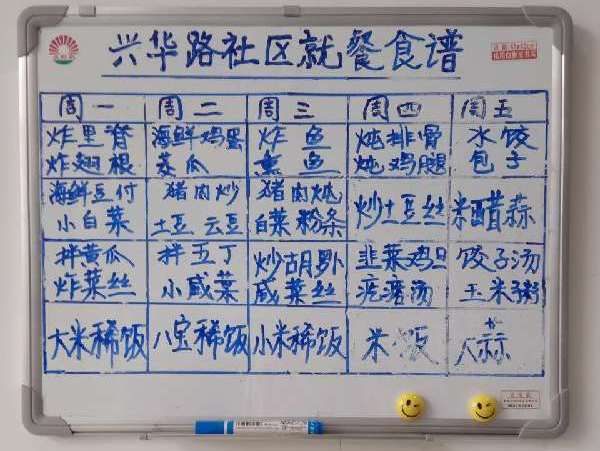 兴华路社区就餐食谱
周一 周二 周三 周四 周五
炸里脊 海鲜鸡蛋 炸鱼 炖排骨 水饺
炸翅根 茭瓜 熏鱼 炖鸡腿 包子
海鲜豆付 猪肉炒 猪肉炖 炒土豆丝 米醋蒜
小白菜 土豆云豆 白菜粉条
拌黄瓜 拌五丁 炒胡卜 韭菜鸡旦 饺子汤
炸菜丝 小咸菜 咸菜丝 疙瘩汤 玉米粥
大米稀饭 八宝稀饭 小米稀饭 米饭 大蒜